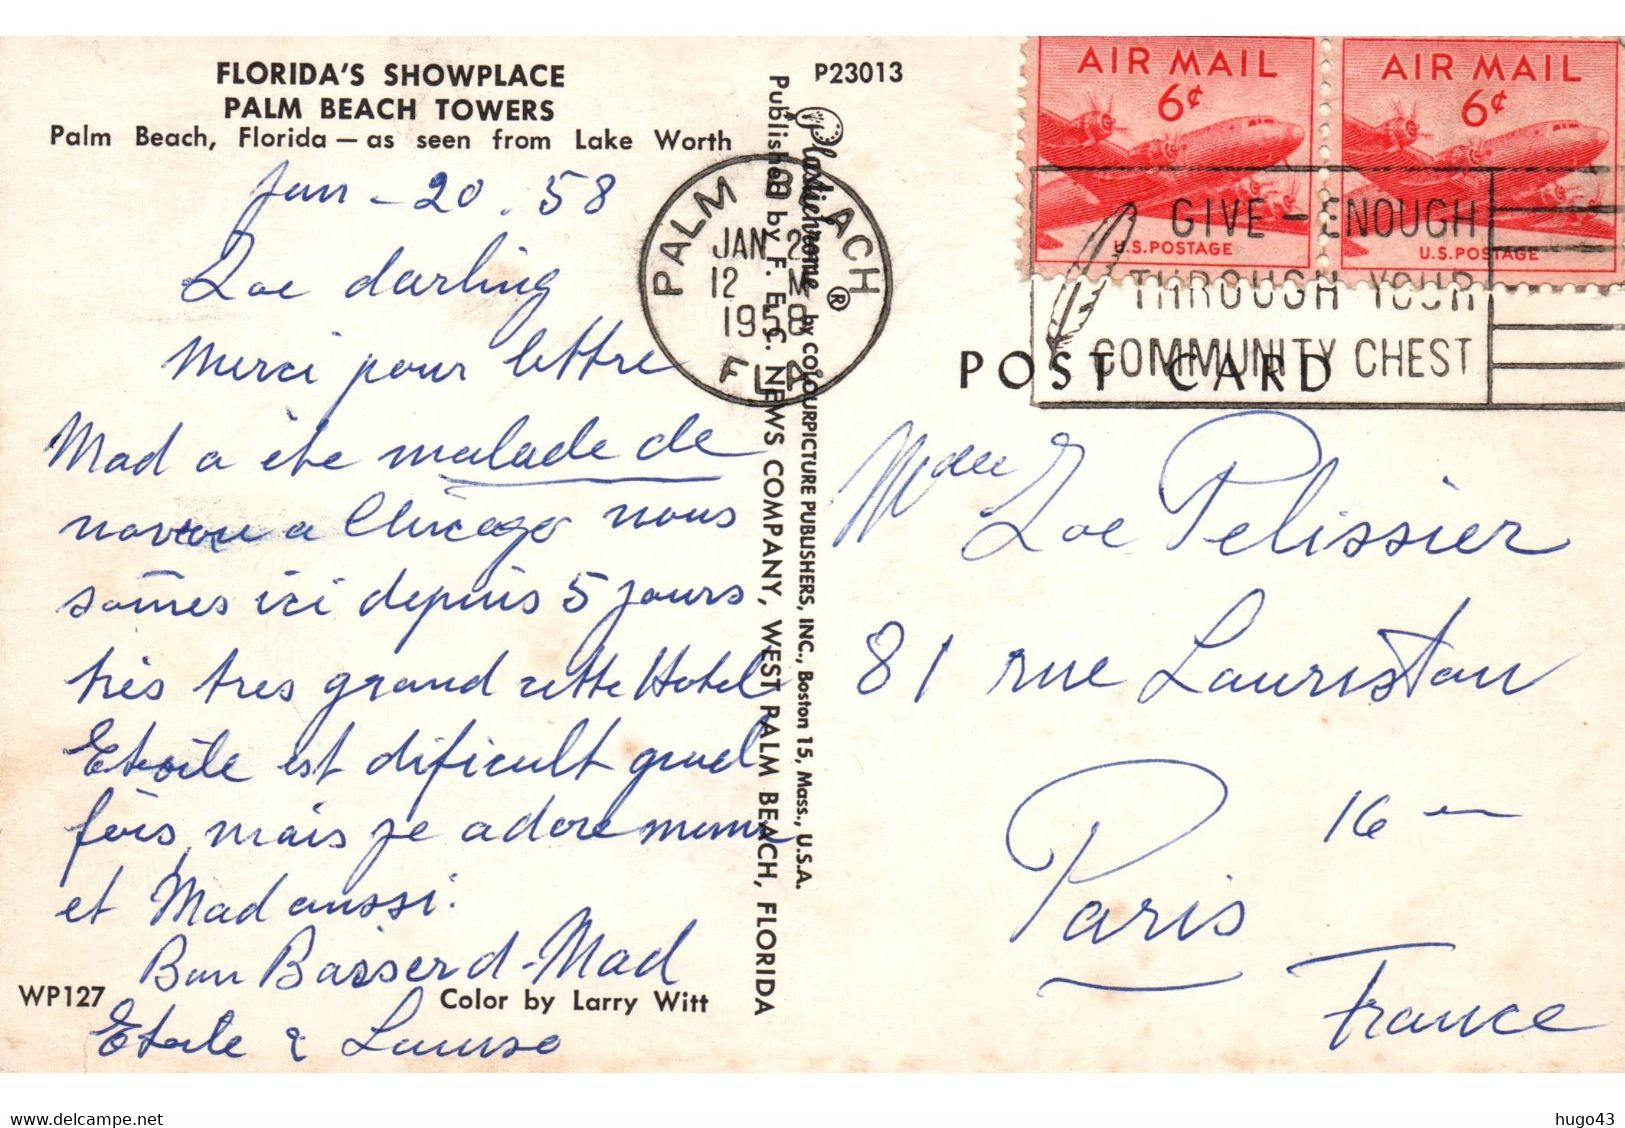 FLORIDA'S SHOWPLACE
PALM BEACH TOWERS
Palm Beach, Florida — as seen from Lake Worth
Jan - 20 . 58
Zoe darling
Merci pour lettre
Mad a ête malade de
nouveau a Chicago nous
sômes ici depuis 5 jours
très tres grand cette Hotel
Etoile est dificult quel
fois, mais je adore meme
et Mad aussi.
Bon Baisser d - Mad
Etoile &
WP127
Color by Larry Witt
Plastichrome ® by COLOURPICTURE PUBLISHERS, INC., Boston 15, Mass., U.S.A.
Published by F. E. C. NEWS COMPANY, WEST PALM BEACH, FLORIDA
P23013
PALM BEACH
JAN 2
12 M
1958
FLA
AIR MAIL
6¢
U.S. POSTAGE
AIR MAIL
6¢
U.S. POSTAGE
GIVE - ENOUGH
THROUGH YOUR
COMMUNITY CHEST
POST CARD
Zoe Pelissier
81 rue Lauriston
16
Paris
France
hugo43